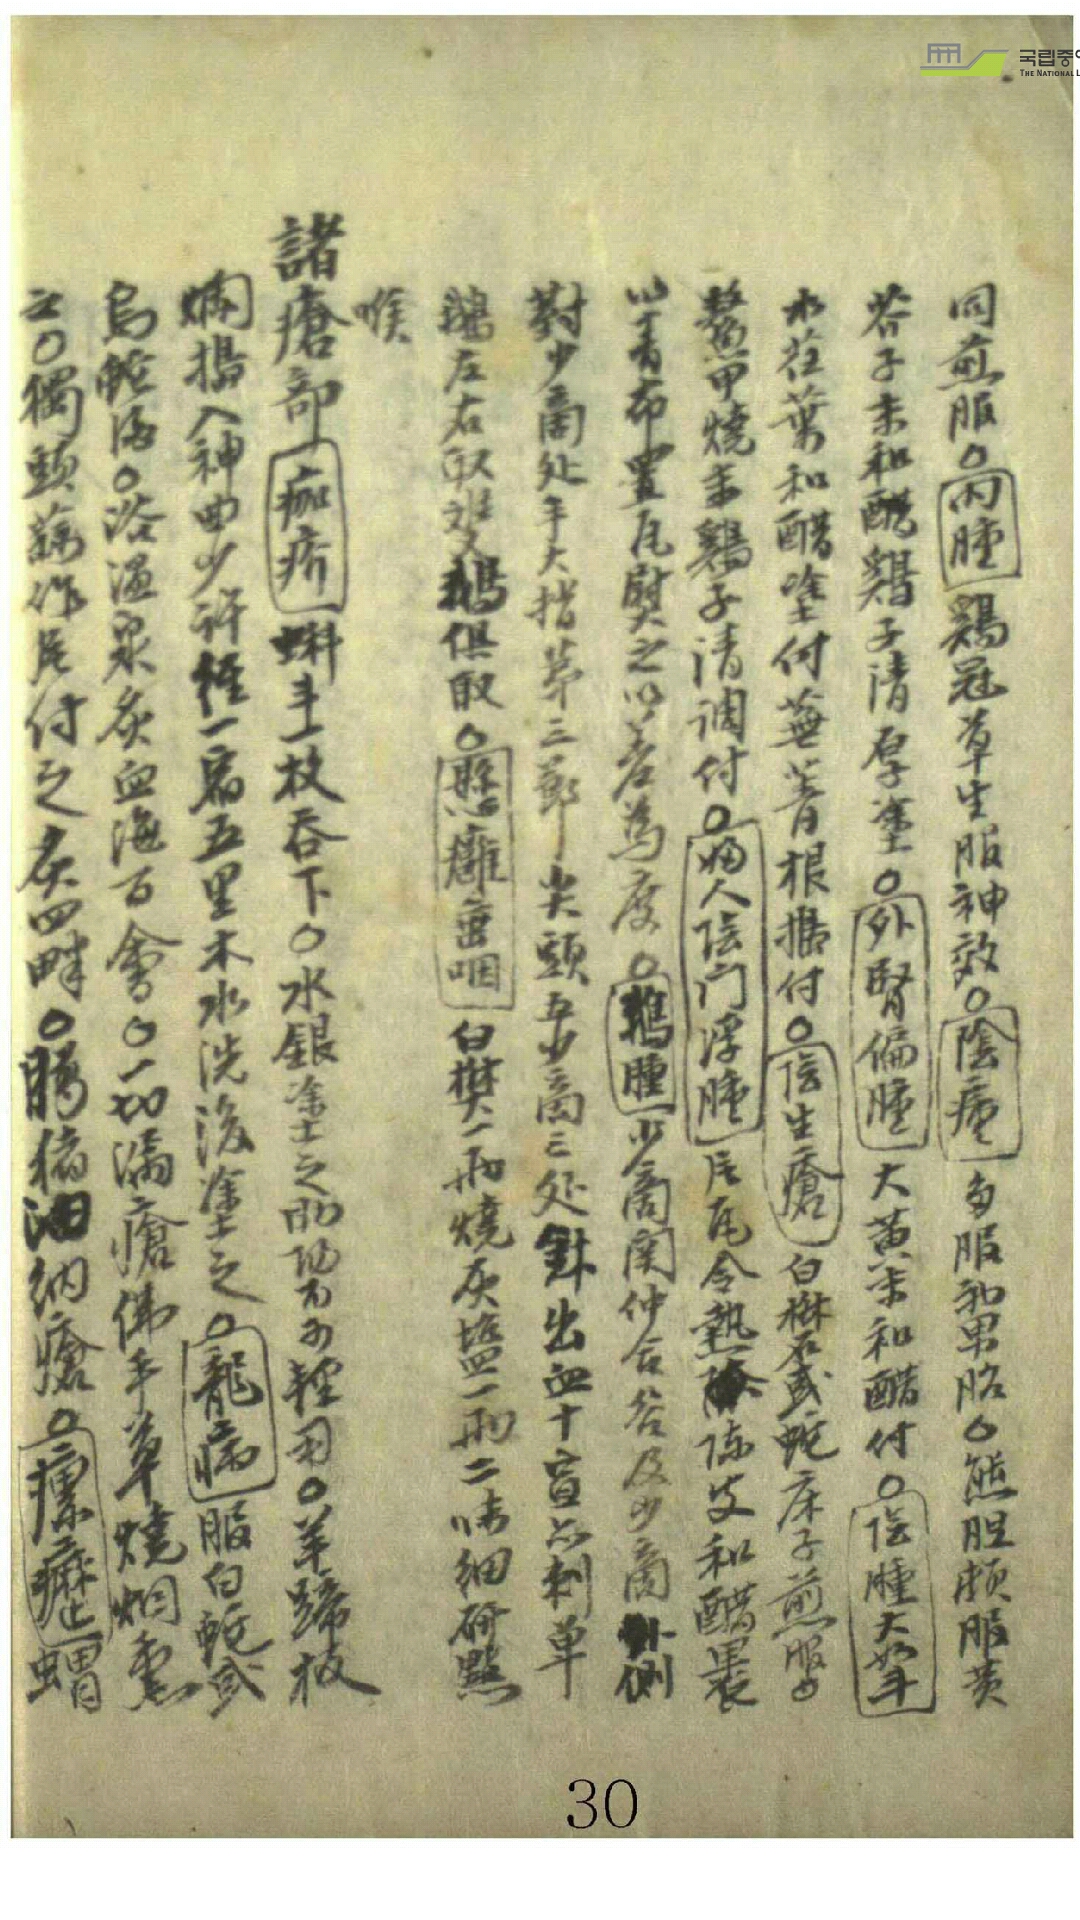 同煎服○囟腫 鷄冠草生服神效○陰痿 多服和男胎○熊胆頻服黃
芩子末和醋鷄子清厚塗○外腎偏腫 大黃末和醋付○陰腫大如斗
水荏葉和醋塗付蕪菁根搗付○陰生瘡 白礬石或蛇床子煎服
鱉甲燒末鷄子清調付○婦人陰門浮腫 瓦令熱 陳艾和醋裹
以青布置瓦熨之以差爲度○鵝腫 少商関仲合谷及少商外側
對少商处手大指第三節尖頭与少商三处針出血十宣亦刺單
鵝左右取双鵝俱取○懸癰垂咽 白礬一兩燒灰塩一兩二味細研點
喉
諸瘡部 痂疥 蝌斗一枚吞下○水銀塗之助功不可輕用○羊蹄根
爛搗入神曲少許經一宿五里木水洗後塗之○龍病 服白蛇或
烏蛇酒○浴温泉灸血海百會○一切滿瘡佛手草燒烟熏
之○獨頭蒜作片付之灸四畔○臈猪油納瘡○瘰癧 蝟
国립중
THE NATIONAL L
30